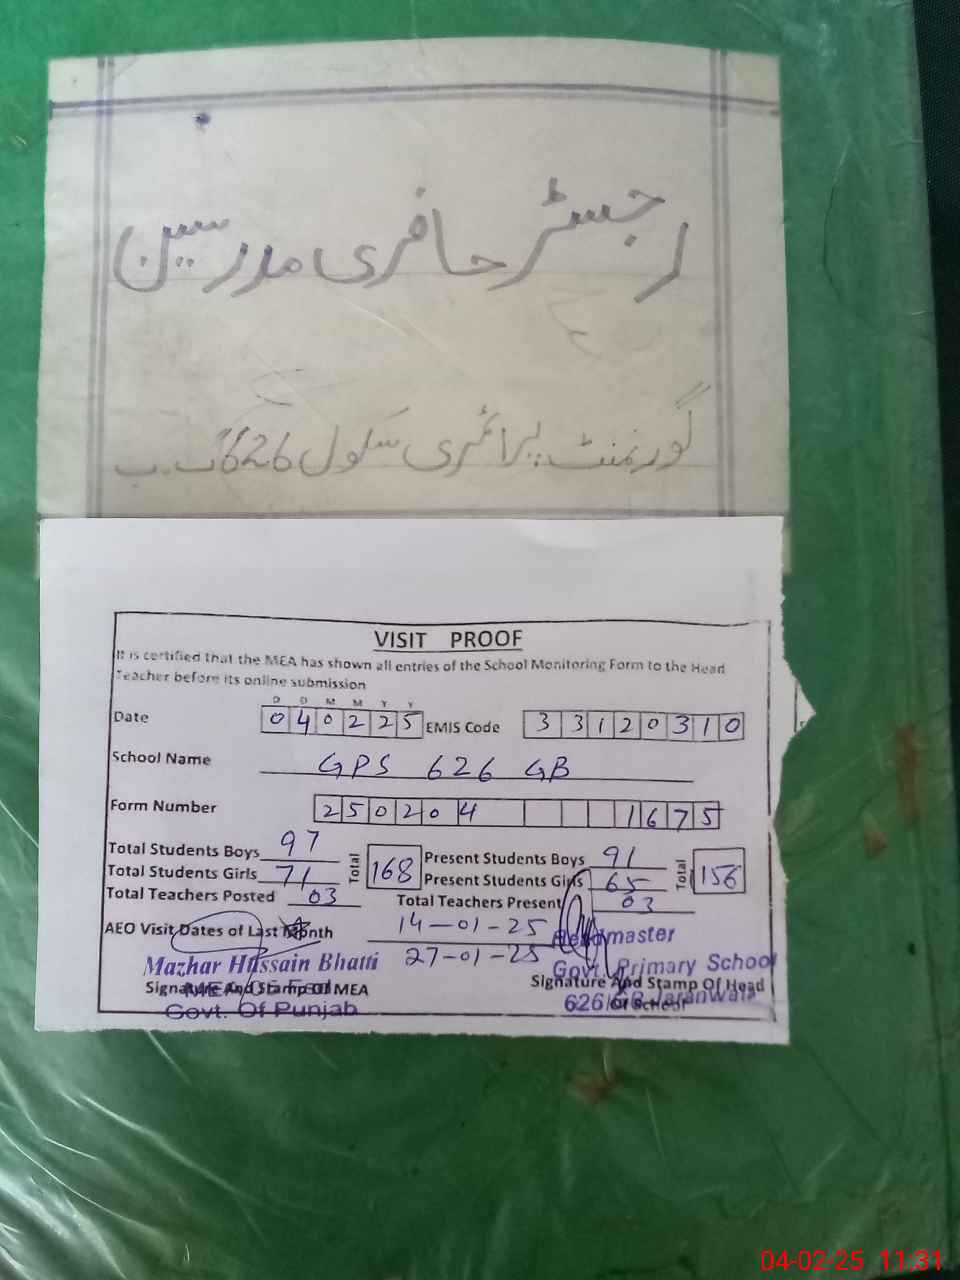 رجسٹر حاضری مدرسین
گورنمنٹ پرائمری سکول 626 گ ب
VISIT PROOF
It is certified that the MEA has shown all entries of the School Monitoring Form to the Head
Teacher before its online submission
D D M M Y Y
Date 040225 EMIS Code 33120310
School Name GPS 626 GB
Form Number 250204 1675
Total Students Boys 97 Total 168 Present Students Boys 91 Total 156
Total Students Girls 71 Present Students Girls 65
Total Teachers Posted 03 Total Teachers Present 03
AEO Visit Dates of Last Month 14-01-25
27-01-25
Headmaster
Mazhar Hussain Bhatti Govt. Primary School
Signature And Stamp Of MEA Signature And Stamp Of Head
Govt. Of Punjab 626 GB Jaranwala
Of School
04-02-25 11:31